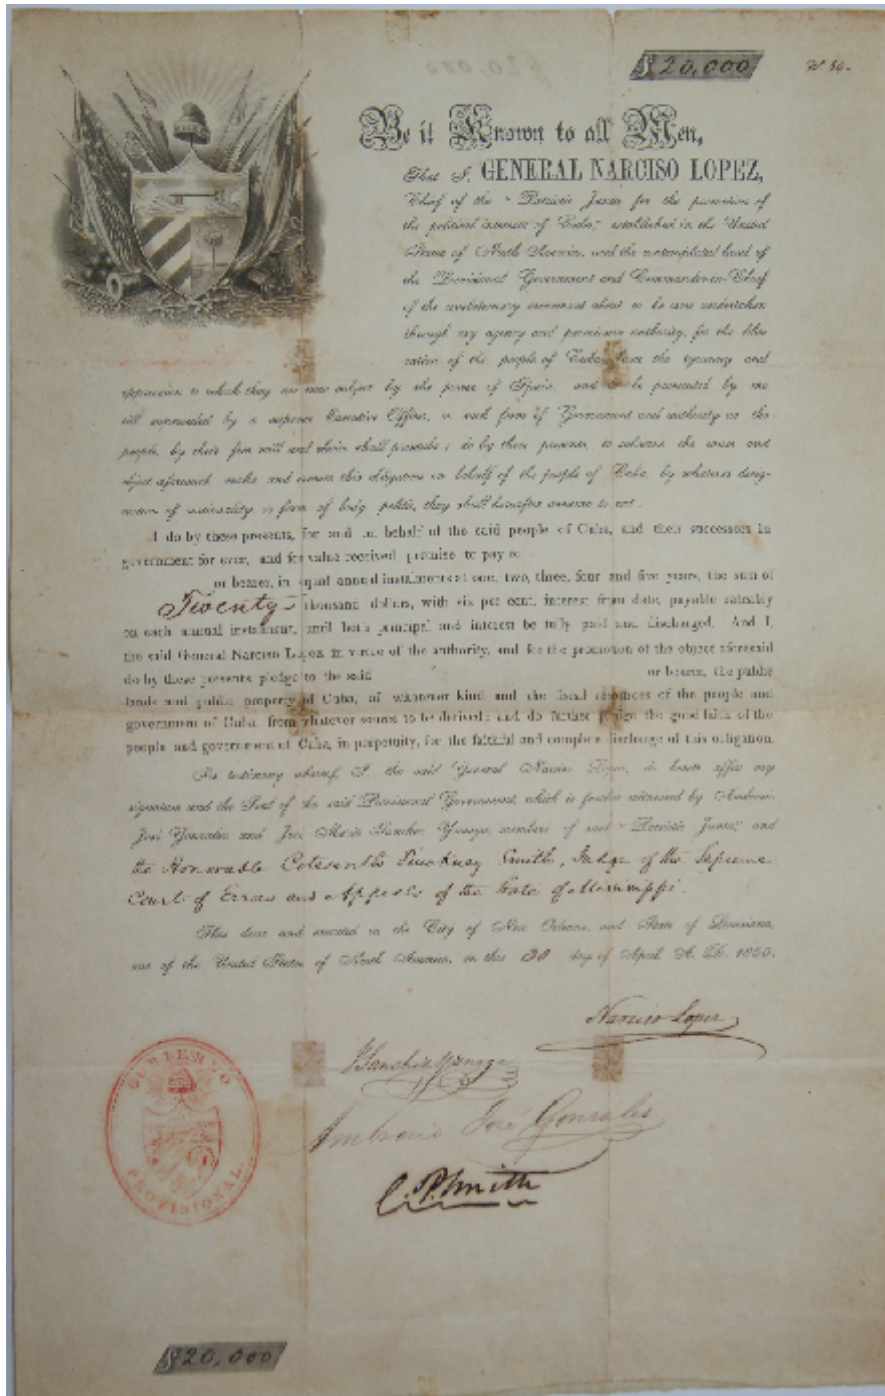 $20,000
Be it Known to all Men,
That I, GENERAL NARCISO LOPEZ,
Chief of the "Patriotic Junta for the promotion of
the political interests of Cuba," established in the United
States of North America, and the contemplated head of
the Provisional Government and Commander-in-Chief
of the revolutionary movement about to be now undertaken
through my agency and provisional authority, for the libe
ration of the people of Cuba from the tyranny and
oppression to which they are now subject by the power of Spain, and to be presented by me
till superseded by a Executive Officer, or such form of Government and authority as the
people, by their free will and choice shall ; do by these presents, to advance the cause and
object aforesaid, make and execute this obligation on behalf of the people of Cuba, by whatever desig-
nation of nationality or form of body politic, they shall hereafter assume to act.
I do by these presents, for and on behalf of the said people of Cuba, and their successors in
government for ever, and for value received promise to pay to
or bearer, in equal annual instalments at one, two, three, four and five years, the sum of
Twenty thousand dollars, with six per cent. interest from date, payable rateably
on each annual instalment, until both principal and interest be fully paid and discharged. And I,
the said General Narciso Lopez in virtue of the authority, and for the promotion of the object aforesaid
do by these presents, pledge to the said or bearer, the public
lands and public property of Cuba, of whatever kind and the fiscal resources of the people and
government of Cuba, from whatever source to be derived; and do further pledge the good faith of the
people and government of Cuba, in perpetuity, for the faithful and complete discharge of this obligation.
In testimony whereof, I, the said General Narciso Lopez, do hereto affix my
signature and the Seal of the said Provisional Government, which is further witnessed by Ambrosio
José Gonzales and José Maria Sanchez Yznaga, members of said "Patriotic Junta," and
the Honorable Cotesworth Pinckney Smith, Judge of the Supreme
Court of Errors and Appeals of the State of Mississippi.
Thus done and executed in the City of New Orleans, and State of Louisiana,
one of the United States of North America, on this 30 day of April A. D. 1850.
Narciso Lopez
J Sanchez Yznaga
Ambrosio José Gonzales
C. P. Smith
GOBIERNO
PROVISIONAL
$20,000